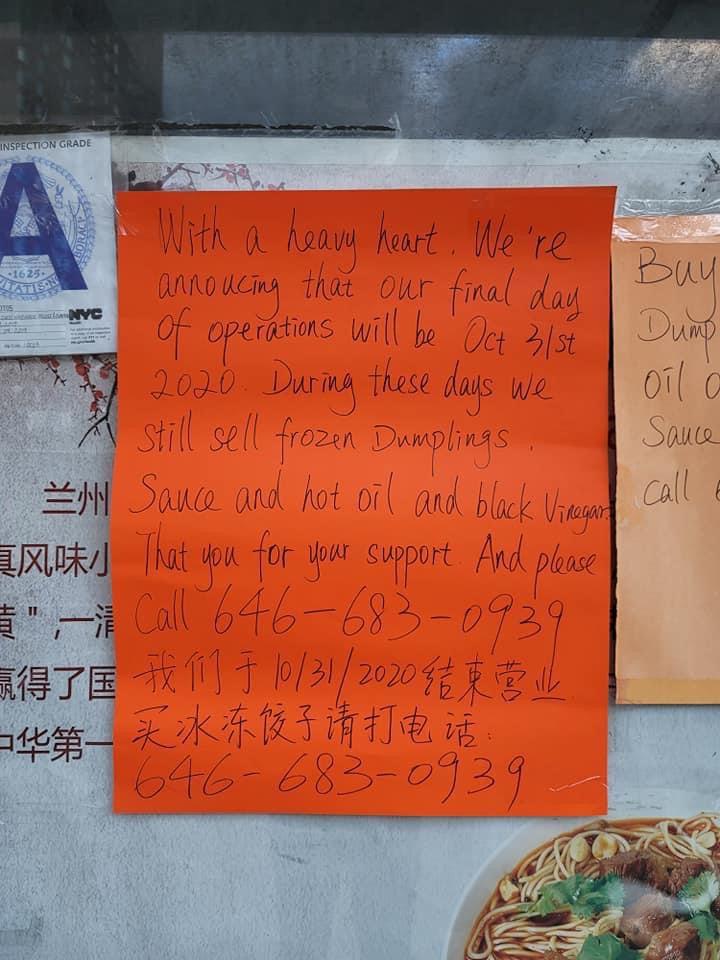 INSPECTION GRADE
A
1625
NYC
With a heavy heart. We're
annoucing that our final day
of operations will be Oct 31st
2020. During these days we
still sell frozen Dumplings.
Sauce and hot oil and black Vinegar.
That you for your support. And please
Call 646-683-0939
我们于10/31/2020结束营业
买冰冻饺子请打电话:
646-683-0939
Buy
Dump
Oil
Sauce
Call
兰州
真风味小
黄",一清
赢得了国
中华第一